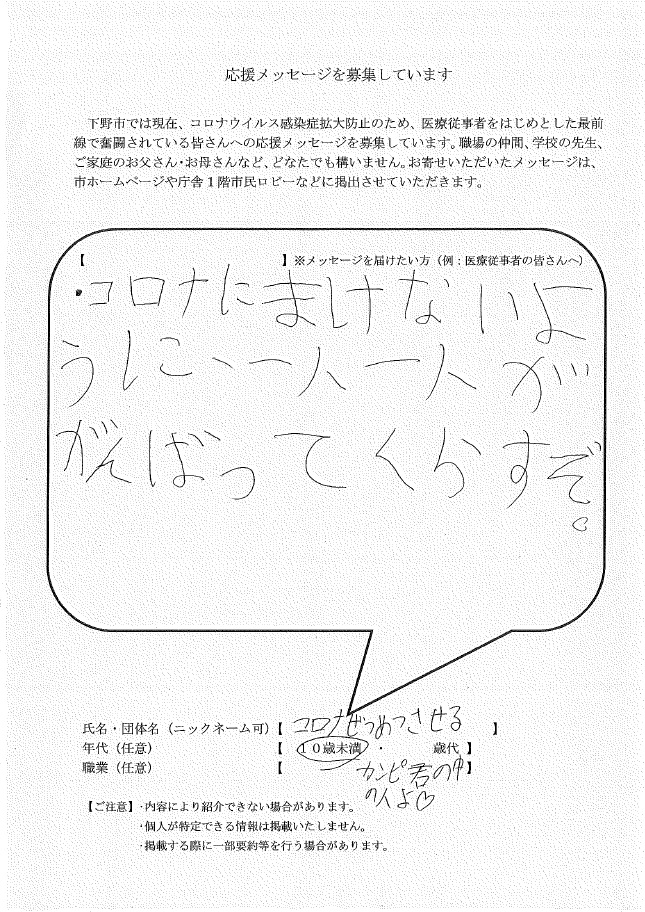 応援メッセージを募集しています
下野市では現在、コロナウイルス感染症拡大防止のため、医療従事者をはじめとした最前
線で奮闘されている皆さんへの応援メッセージを募集しています。職場の仲間、学校の先生、
ご家庭のお父さん・お母さんなど、どなたでも構いません。お寄せいただいたメッセージは、
市ホームページや庁舎1階市民ロビーなどに掲出させていただきます。
【 】※メッセージを届けたい方（例：医療従事者の皆さんへ）
・コロナにまけないよ
うに、一人一人が
がんばってくらすぞ。
氏名・団体名（ニックネーム可）【 コロナぜつめつさせる 】
年代（任意） 【 10歳未満 ・ 歳代 】
職業（任意） 【 カンピ君の中 】
の人よ♡
【ご注意】・内容により紹介できない場合があります。
・個人が特定できる情報は掲載いたしません。
・掲載する際に一部要約等を行う場合があります。